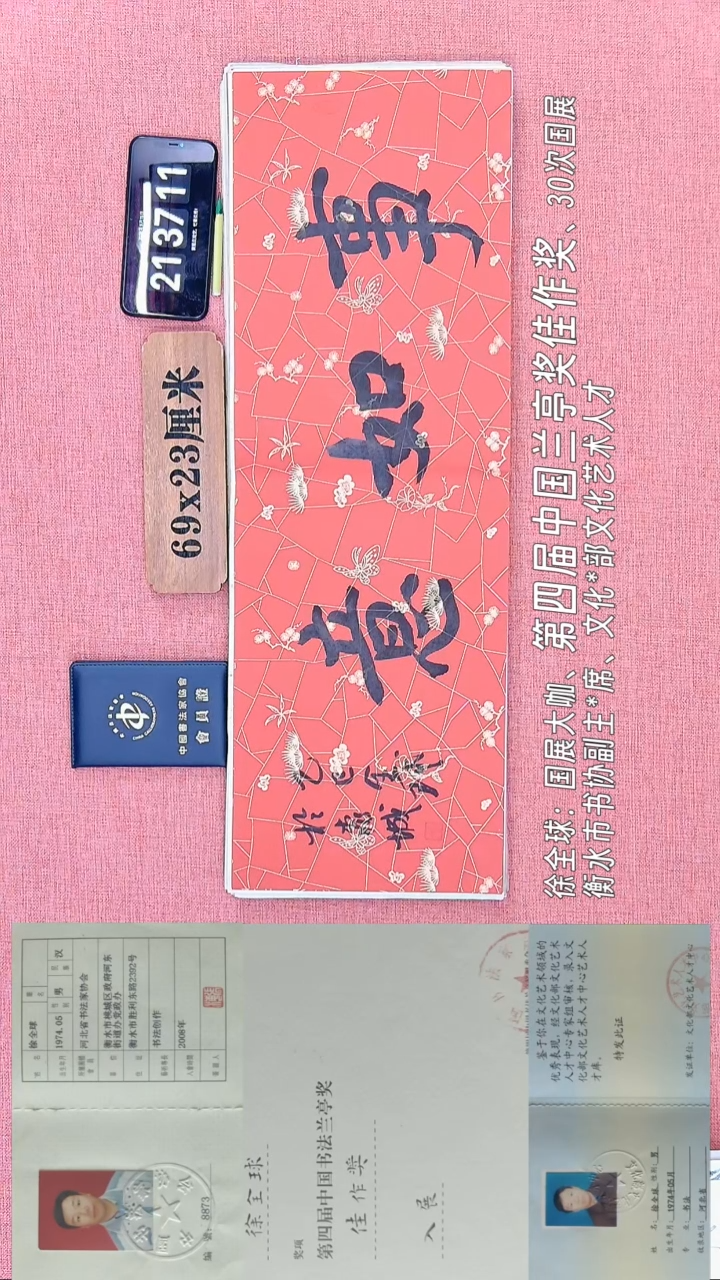 213711
69x23厘米
中国書法家協會
會員證
事如意
乙巳全球
徐全球：国展大咖、第四届中国兰亭奖佳作奖、30次国展
衡水市书协副主*席、文化*部文化艺术人才
徐全球
1974.05 男 汉
河北省书法家协会
衡水市桃城区政府河东
街道办党政办
衡水市胜利东路2392号
书法创作
2008年
编号: 8873
徐全球
奖项
第四届中国书法兰亭奖
佳作奖
入展
姓名: 徐全球 性别: 男
出生年月: 1974年05月
专业: 书法
鉴于你在文化艺术领域的
优秀表现，经文化部文化艺术
人才中心专家组审核，录入文
化部文化艺术人才中心艺术人
才库。
特发此证
发证单位：文化部文化艺术人才中心